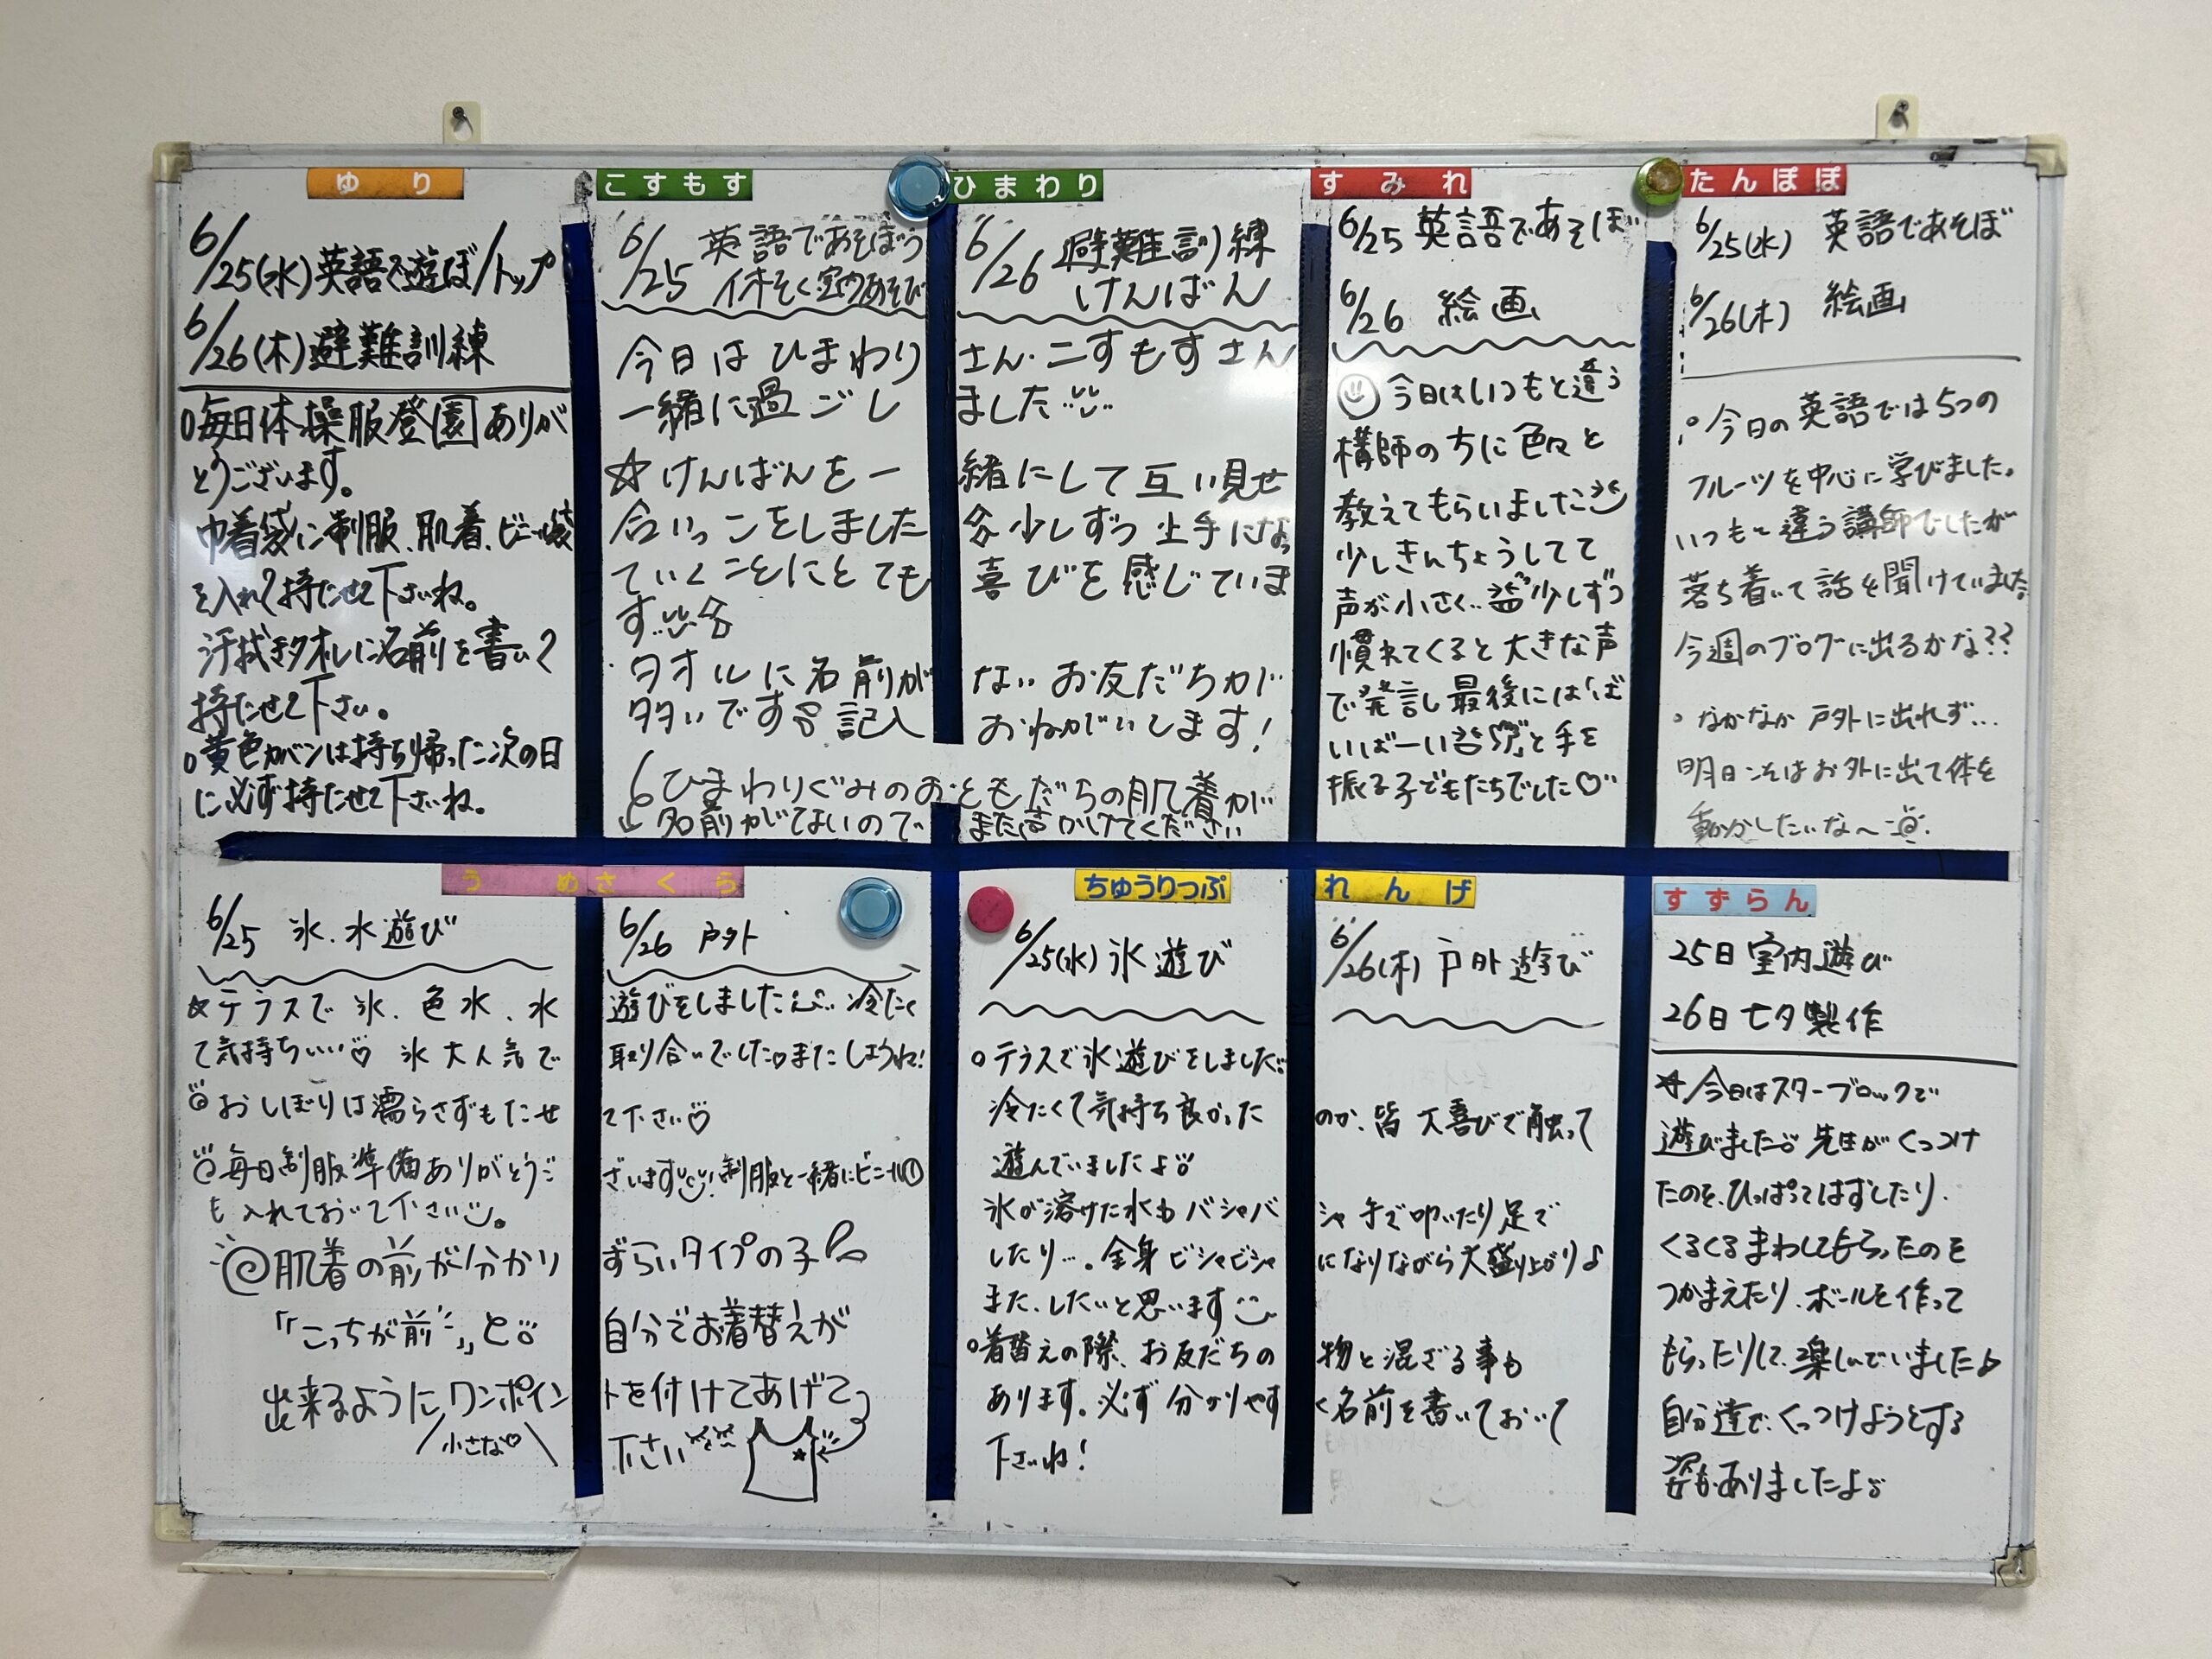 ゆり
6/25(水)英語で遊ぼ/トップ
6/26(木)避難訓練
○毎日体操服登園ありが
とうございます。
巾着袋に制服、肌着、ビニール袋
を入れて持たせて下さいね。
汗拭きタオルに名前を書いて
持たせて下さい。
○黄色カバンは持ち帰った次の日
に必ず持たせて下さいね。
こすもす ひまわり
6/25 英語であそぼう
6/26 避難訓練
けんばん
今日はひまわりさん・こすもすさん
一緒に過ごしました
☆けんばんを一緒にして互い見せ
合いっこをしました 少しずつ上手になっ
ていくことにとても喜びを感じていま
す
・タオルに名前がないお友だちが
多いです 記入おねがいします!
ひまわりぐみのおともだちの肌着が
名前がてないのでまた声かけてください
すみれ
6/25 英語であそぼ
6/26 絵画
今日はいつもと違う
講師の方に色々と
教えてもらいました
少しきんちょうしてて
声が小さく… 少しずつ
慣れてくると大きな声
で発言し最後には「ば
いばーい」と手を
振る子どもたちでした♡
たんぽぽ
6/25(水) 英語であそぼ
6/26(木) 絵画
○今日の英語では5つの
フルーツを中心に学びました。
いつもと違う講師でしたが
落ち着いて話を聞けていました
今週のブログに出るかな??
○なかなか戸外に出れず…
明日こそはお外に出て体を
動かしたいな〜
うめ さくら
6/25 氷、水遊び
6/26 戸外
☆テラスで氷、色水、水遊びをしました 冷たく
て気持ちいい♡ 氷大人気で取り合いでした♡またしようね!
おしぼりは濡らさずもたせて下さい♡
毎日制服準備ありがとうございます!制服と一緒にビニール
も入れておいて下さい。
肌着の前が分かりずらいタイプの子
「こっちが前」と自分でお着替えが
出来るようにワンポイントを付けてあげて
小さな♡
下さい
ちゅうりっぷ れんげ
6/25(水) 氷遊び
6/26(木) 戸外遊び
○テラスで氷遊びをしました
冷たくて気持ち良かったのか、皆大喜びで触って
遊んでいましたよ
氷が溶けた水もバシャバシャ手で叩いたり足で
したり…。全身ビシャビシャになりながら大盛り上がり♪
また、したいと思います
○着替えの際、お友だちの物と混ざる事も
あります。必ず分かりやすく名前を書いておいて
下さいね!
すずらん
25日 室内遊び
26日 七夕製作
☆今日はスターブロックで
遊びました 先生がくっつけ
たのを、ひっぱってはずしたり、
くるくるまわしてもらったのを
つかまえたり、ボールを作って
もらったりして、楽しんでいました♪
自分達で、くっつけようとする
姿もありましたよ